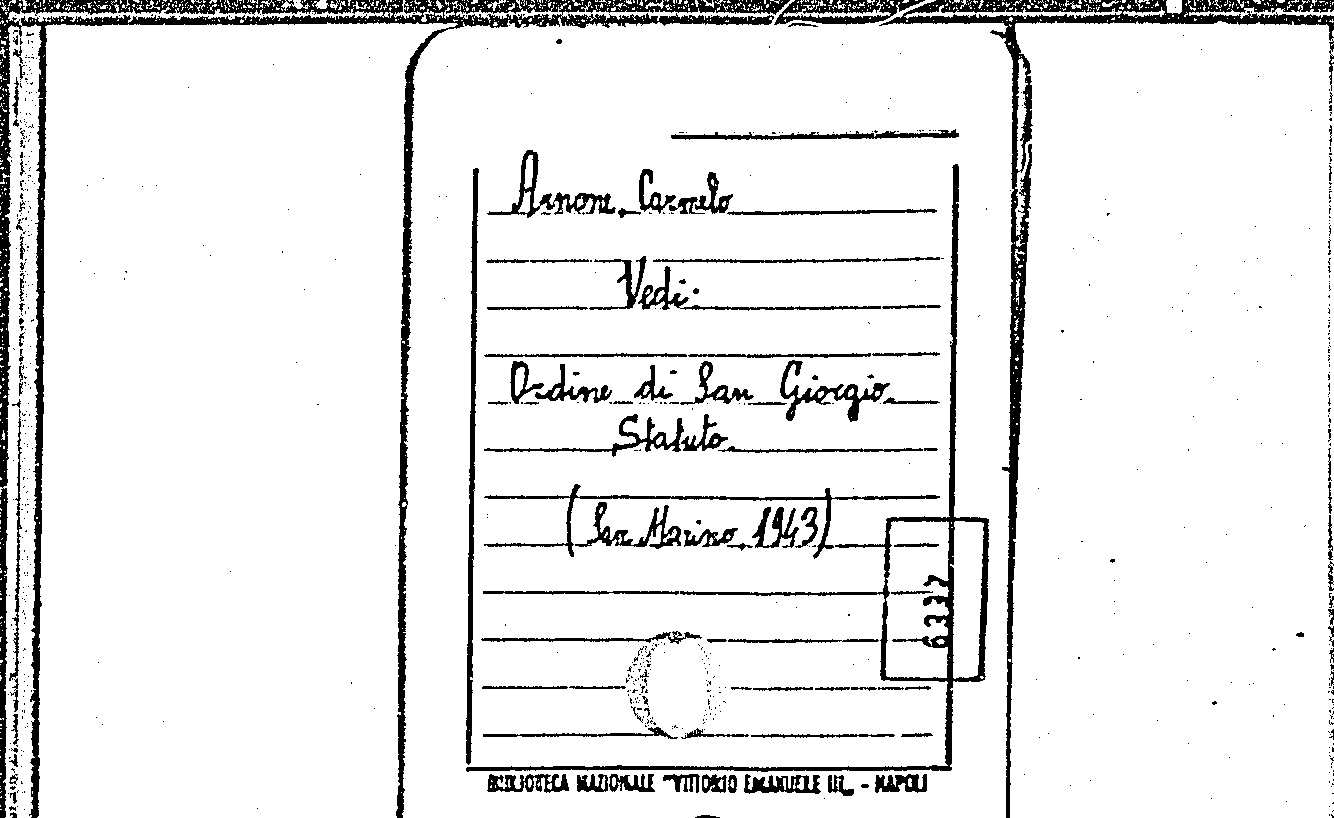 Arnone, Carmelo
Vedi:
Ordine di San Giorgio.
Statuto.
(San Marino, 1943)
6337
BIBLIOTECA NAZIONALE "VITTORIO EMANUELE III„ - NAPOLI